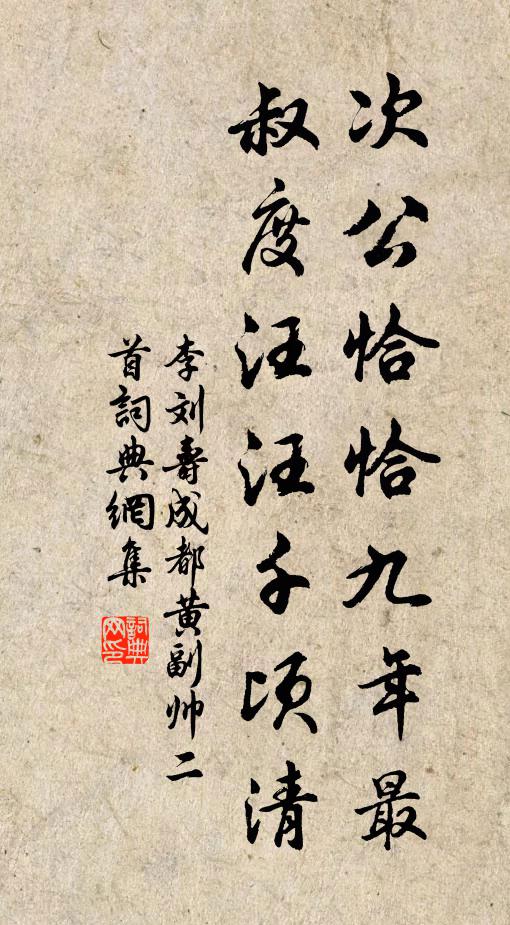 次公恰恰九年最
叔度汪汪千顷清
李刘寿成都黄副帅二
首詞典網集
詞典
网印